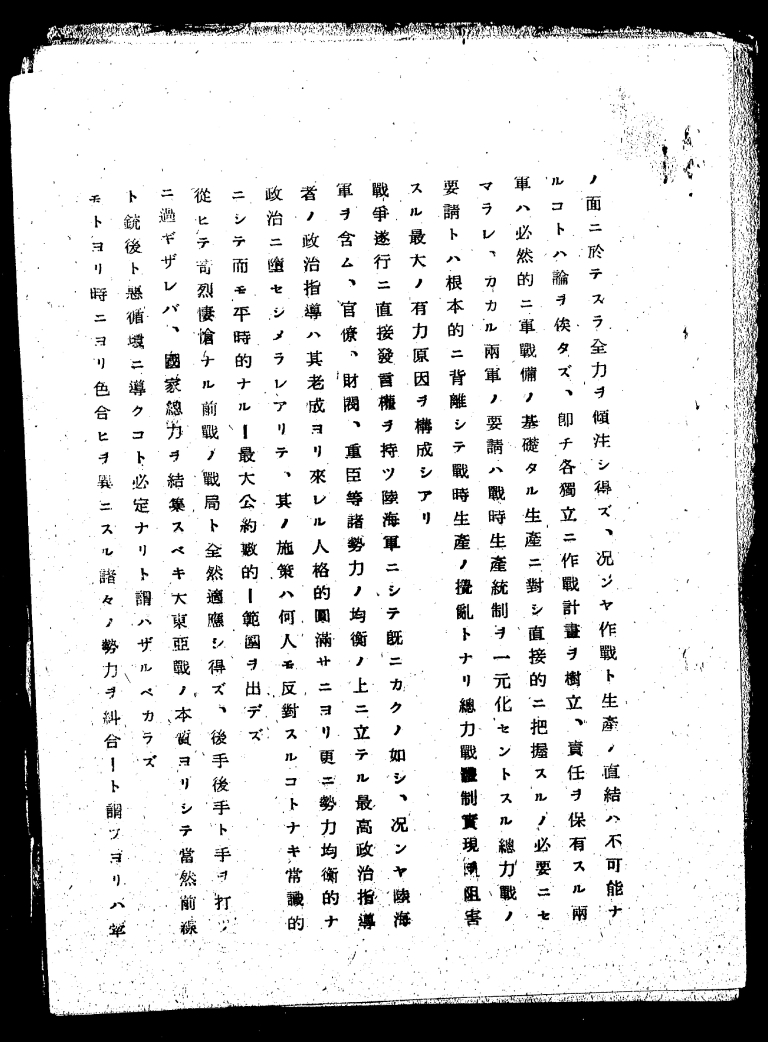 ノ面ニ於テスラ全力ヲ傾注シ得ズ、况ンヤ作戰ト生產ノ直結ハ不可能ナ
ルコトハ論ヲ俟タズ、卽チ各獨立ニ作戰計畫ヲ樹立、責任ヲ保有スル兩
軍ハ必然的ニ軍戰備ノ基礎タル生產ニ對シ直接的ニ把握スルノ必要ニセ
マラレ、カカル兩軍ノ要請ハ戰時生產統制ヲ一元化セントスル總力戰ノ
要請トハ根本的ニ背離シテ戰時生產ノ攪亂トナリ總力戰體制實現ヲ阻害
スル最大ノ有力原因ヲ構成シアリ
戰爭遂行ニ直接發言權ヲ持ツ陸海軍ニシテ旣ニカクノ如シ、况ンヤ陸海
軍ヲ含ム、官僚、財閥、重臣等諸勢力ノ均衡ノ上ニ立テル最高政治指導
者ノ政治指導ハ其老成ヨリ來レル人格的圓滿サニヨリ更ニ勢力均衡的ナ
政治ニ墮セシメラレアリテ、其ノ施策ハ何人モ反對スルコトナキ常識的
ニシテ而モ平時的ナルー最大公約數的ー範圍ヲ出デズ
從ヒテ苛烈悽愴ナル前戰ノ戰局ト全然適應シ得ズ、後手後手ト手ヲ打ツ
ニ過ギザレバ、國家總力ヲ結集スベキ大東亞戰ノ本質ヨリシテ當然前線
ト銃後ト惡循環ニ導クコト必定ナリト謂ハザルベカラズ
モトヨリ時ニヨリ色合ヒヲ異ニスル諸々ノ勢力ヲ糾合ート謂フヨリハ寧